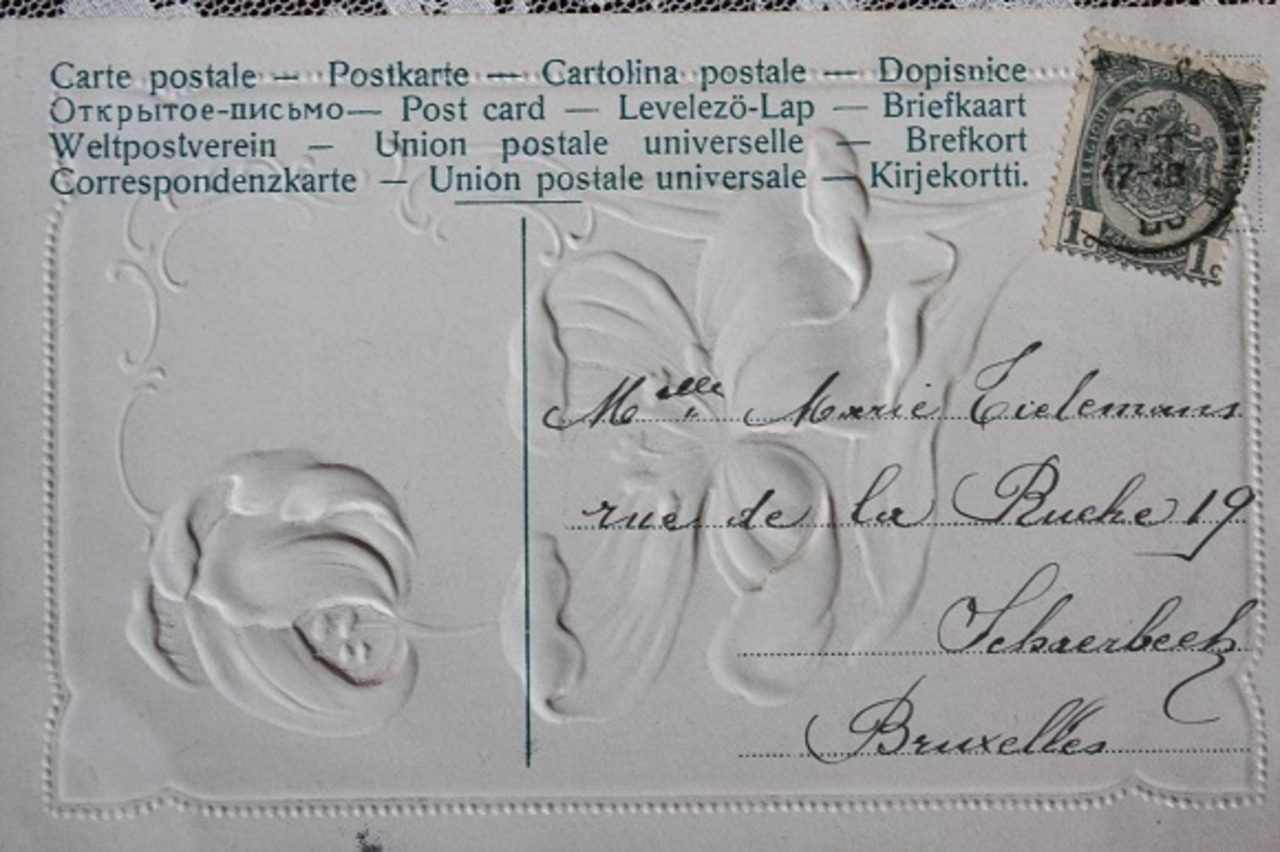 Carte postale — Postkarte — Cartolina postale — Dopisnice
Открытое-письмо— Post card — Levelezö-Lap — Briefkaart
Weltpostverein — Union postale universelle — Brefkort
Correspondenzkarte — Union postale universale — Kirjekortti.
BELGIQUE
17-18
1c 1c
Melle Marie Tielemans
rue de la Ruche 19
Schaerbeek
Bruxelles